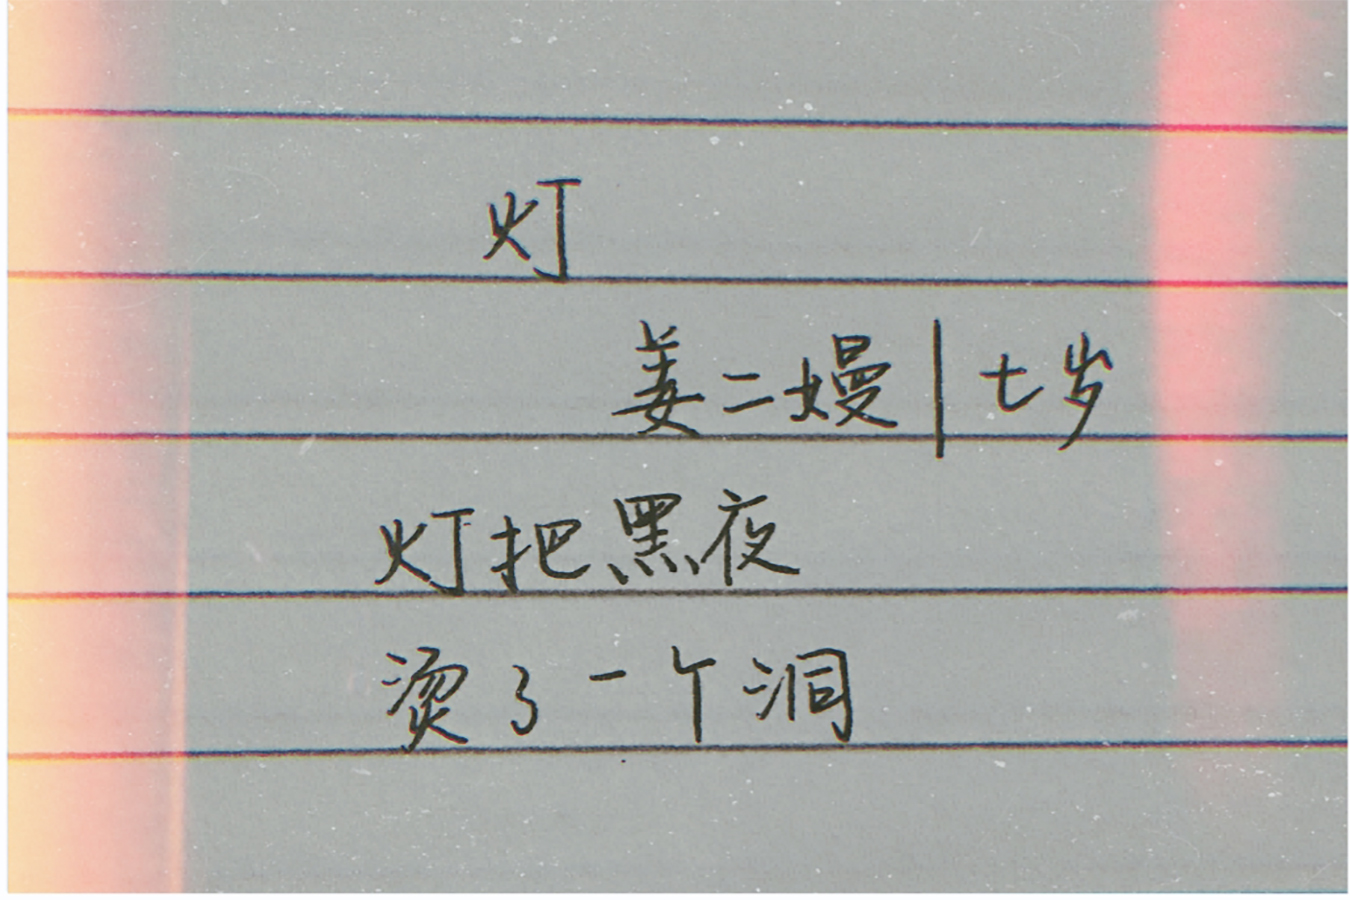 灯
姜二嫚|七岁
灯把黑夜
烫了一个洞